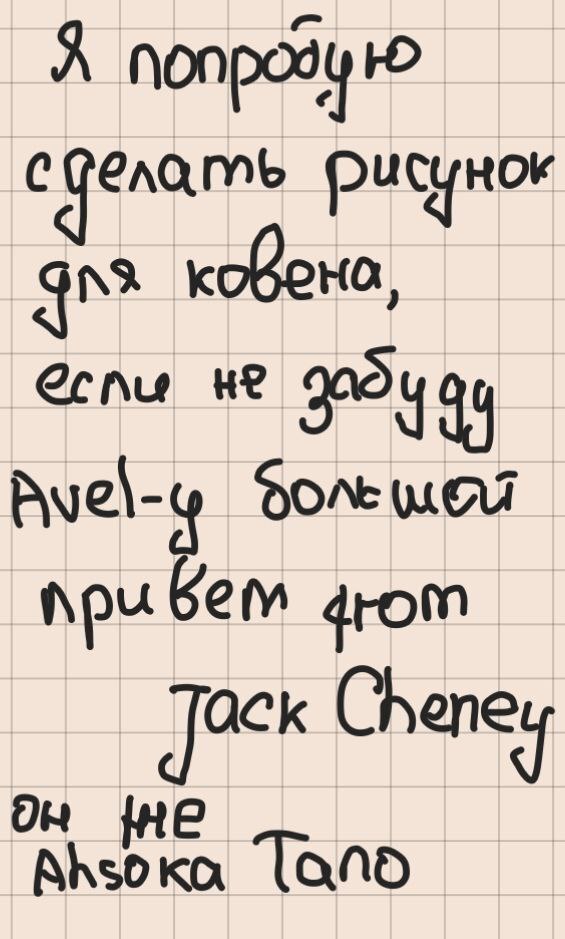 Я попробую
сделать рисунок
для ковена,
если не забуду
Avel-у большой
привет
Jack Cheney
он же
Ahsoka Tano